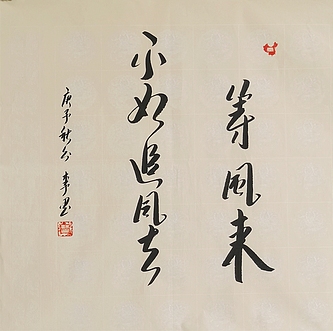 等风来
不如追风去
庚子秋分 李墨